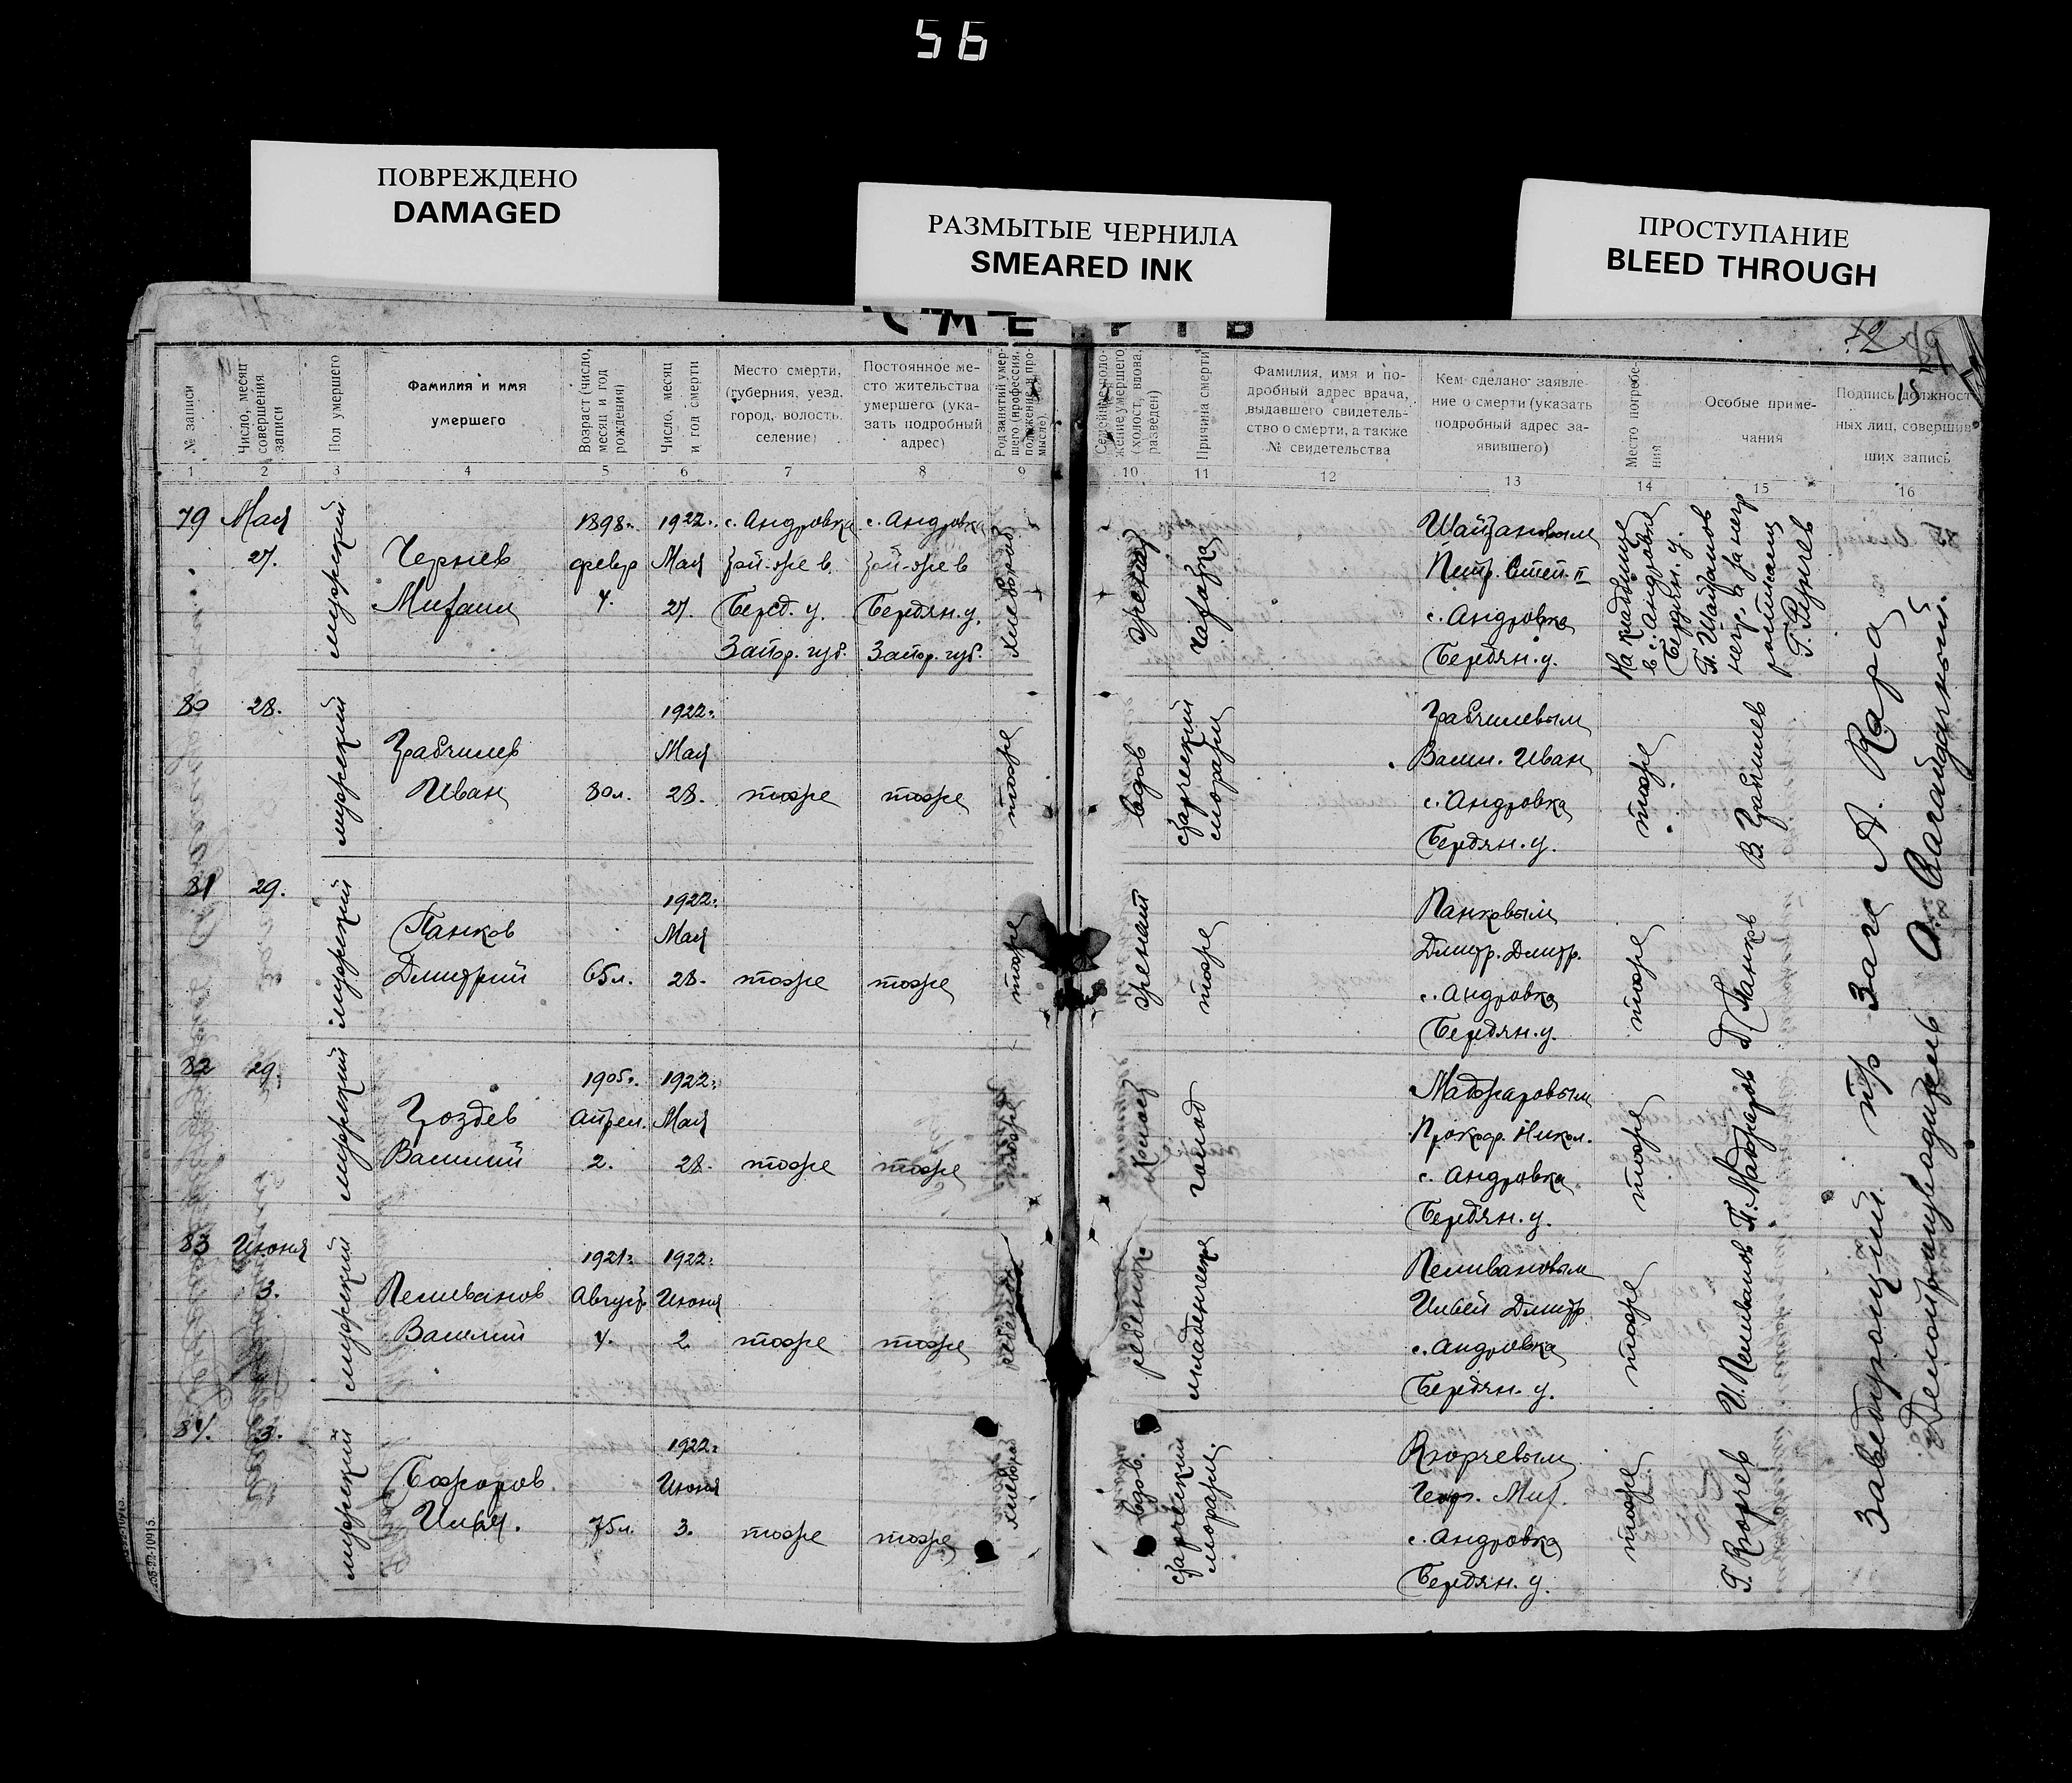 56
ПОВРЕЖДЕНО
DAMAGED
РАЗМЫТЫЕ ЧЕРНИЛА
SMEARED INK
ПРОСТУПАНИЕ
BLEED THROUGH
СМЕРТЬ
№ записи
Число, месяц
совершения
записи
Пол умершего
Фамилия и имя
умершего
Возраст (число,
месяц и год
рождения)
Число, месяц
и год смерти
Место смерти,
(губерния, уезд,
город, волость,
селение)
Постоянное ме-
сто жительства
умершего (ука-
зать подробный
адрес)
Род занятий умер-
шего (профессия,
положение в про-
мысле).
Семейное поло-
жение умершего
(холост, вдова,
разведен)
Причина смерти
Фамилия, имя и по-
дробный адрес врача,
выдавшего свидетель-
ство о смерти, а также
№ свидетельства
Кем сделано заявле-
ние о смерти (указать
подробный адрес за-
явившего)
Место погребе-
ния
Особые приме-
чания
Подпись должност-
ных лиц, совершив-
ших запись
1 2 3 4 5 6 7 8 9 10 11 12 13 14 15 16
79
Мая
27.
мужский
Чернев
Михаил
1898г.
февр
4.
1922г.
Мая
27.
с. Андровка
той-же в.
Берд. у.
Запор. губ.
с. Андровка
той-же в
Бердян. у.
Запор. губ.
хлебороб
женат
чахотка
Петр. Степ. II
с. Андровка
Бердян. у.
На кладбище
в с. Андровке
Бердян. у.
негр. а за негр
80
28.
мужский
Иван
80л.
1922г.
Мая
28.
тоже
тоже
тоже
вдов
старческий
маразм
Васил. Иван
с. Андровка
Бердян. у.
тоже
81
29.
мужский
Панков
Дмитрий
65л.
1922г.
Мая
28.
тоже
тоже
тоже
женат
тоже
Панковым
Дмитр. Дмитр.
с. Андровка
Бердян. у.
тоже
Д Панков
82
29.
мужский
Гоздев
Василий
1905г.
Апрел.
2.
1922г.
Мая
28.
тоже
тоже
тоже
холост
голод
Маджаровым
Прокоф. Никол.
с. Андровка
Бердян. у.
тоже
П. Маджаров
83
Июня
3.
мужский
Пеливанов
Василий
1921г.
Август
4.
1922г.
Июня
2
тоже
тоже
ребенок
ребенок
младенческ
Пеливановым
Дмитр
с. Андровка
Бердян. у.
тоже
И. Пеливанов
84.
3.
мужский
Божоров.
75л.
1922г.
Июня
3.
тоже
тоже
хлебороб
вдов.
старческий
маразм.
Кюрчевым
Георг. Мих.
с. Андровка
Бердян. у.
тоже
Г. Кюрчев
Заведующий п/о Загс А. Кара
Делопроизводитель